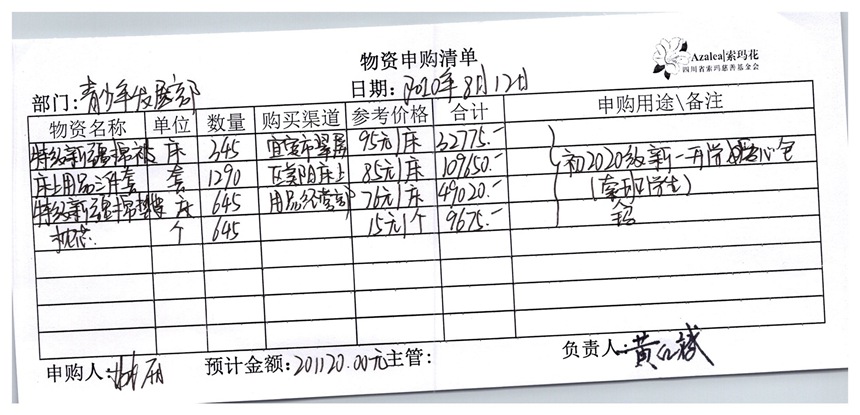 物资申购清单
Azalea|索玛花
四川省索玛慈善基金会
部门:青少年发展部 日期:2020年8月12日
物资名称 单位 数量 购买渠道 参考价格 合计 申购用途\备注
特级新疆棉被 床 345 宜宾市翠屏 95元/床 32775.-
床上用品三件套 套 1290 区 床上 85元/床 109650.- 初2020级新一开学 心包
特级新疆棉 床 645 用品经营部 76元/床 49020.- (索玛 学生)
枕芯 个 645 15元/个 9675.-
申购人: 预计金额:201120.00元 主管: 负责人:黄红斌